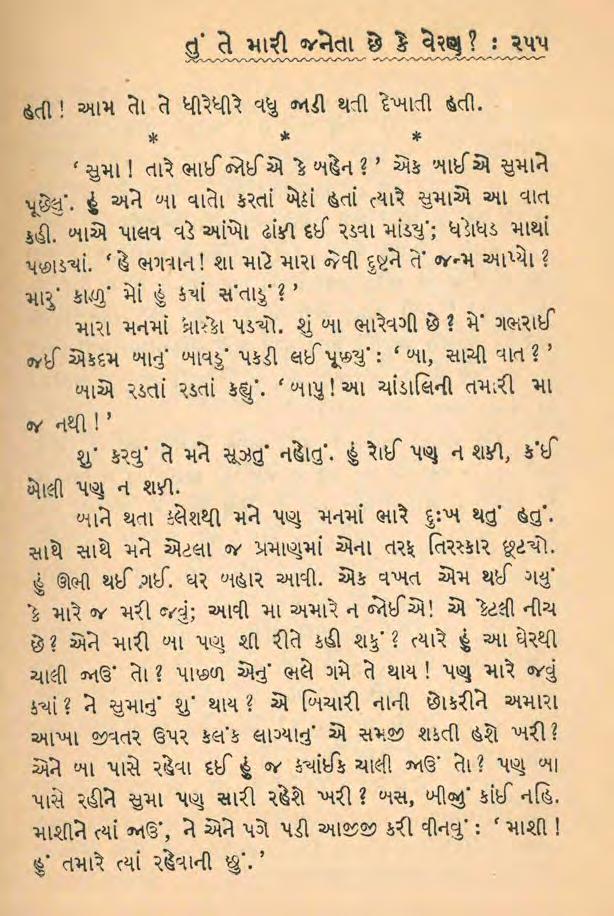 તું તે મારી જનેતા છે કે વેરણ? : ૨૫૫
હતી! આમ તો તે ધીરેધીરે વધુ જાડી થતી દેખાતી હતી.
* * *
‘ સુમા! તારે ભાઈ જોઈએ કે બહેન?’ એક બાઈએ સુમાને
પૂછેલું. હું અને બા વાતો કરતાં બેઠાં હતાં ત્યારે સુમાએ આ વાત
કહી. બાએ પાલવ વડે આંખો ઢાંકી દઈ રડવા માંડ્યું; ધડાધડ માથાં
પછાડ્યાં. ‘હે ભગવાન! શા માટે મારા જેવી દુષ્ટને તેં જન્મ આપ્યો?
મારું કાળું મોં હું ક્યાં સંતાડું?’
મારા મનમાં ધ્રાસ્કો પડ્યો. શું બા ભારેવગી છે? મેં ગભરાઈ
જઈ એકદમ બાનું બાવડું પકડી લઈ પૂછ્યું: ‘બા, સાચી વાત?’
બાએ રડતાં રડતાં કહ્યું. ‘બાપુ! આ ચાંડાલિની તમારી મા
જ નથી!’
શું કરવું તે મને સૂઝતું નહોતું. હું રોઈ પણ ન શકી, કંઈ
બોલી પણ ન શકી.
બાને થતા ક્લેશથી મને પણ મનમાં ભારે દુઃખ થતું હતું.
સાથે સાથે મને એટલા જ પ્રમાણમાં એના તરફ તિરસ્કાર છૂટ્યો.
હું ઊભી થઈ ગઈ. ઘર બહાર આવી. એક વખત એમ થઈ ગયું
કે મારે જ મરી જવું; આવી મા અમારે ન જોઈએ! એ કેટલી નીચ
છે? એને મારી બા પણ શી રીતે કહી શકું? ત્યારે હું આ ઘેરથી
ચાલી જાઉં તો? પાછળ એનું ભલે ગમે તે થાય! પણ મારે જવું
ક્યાં? ને સુમાનું શું થાય? એ બિચારી નાની છોકરીને અમારા
આખા જીવતર ઉપર કલંક લાગ્યાનું એ સમજી શકતી હશે ખરી?
એને બા પાસે રહેવા દઈ હું જ ક્યાંઈક ચાલી જાઉં તો? પણ બા
પાસે રહીને સુમા પણ સારી રહેશે ખરી? બસ, બીજું કાંઈ નહિ.
માશીને ત્યાં જાઉં, ને એને પગે પડી આજીજી કરી વીનવું: ‘માશી!
હું તમારે ત્યાં રહેવાની છું.’